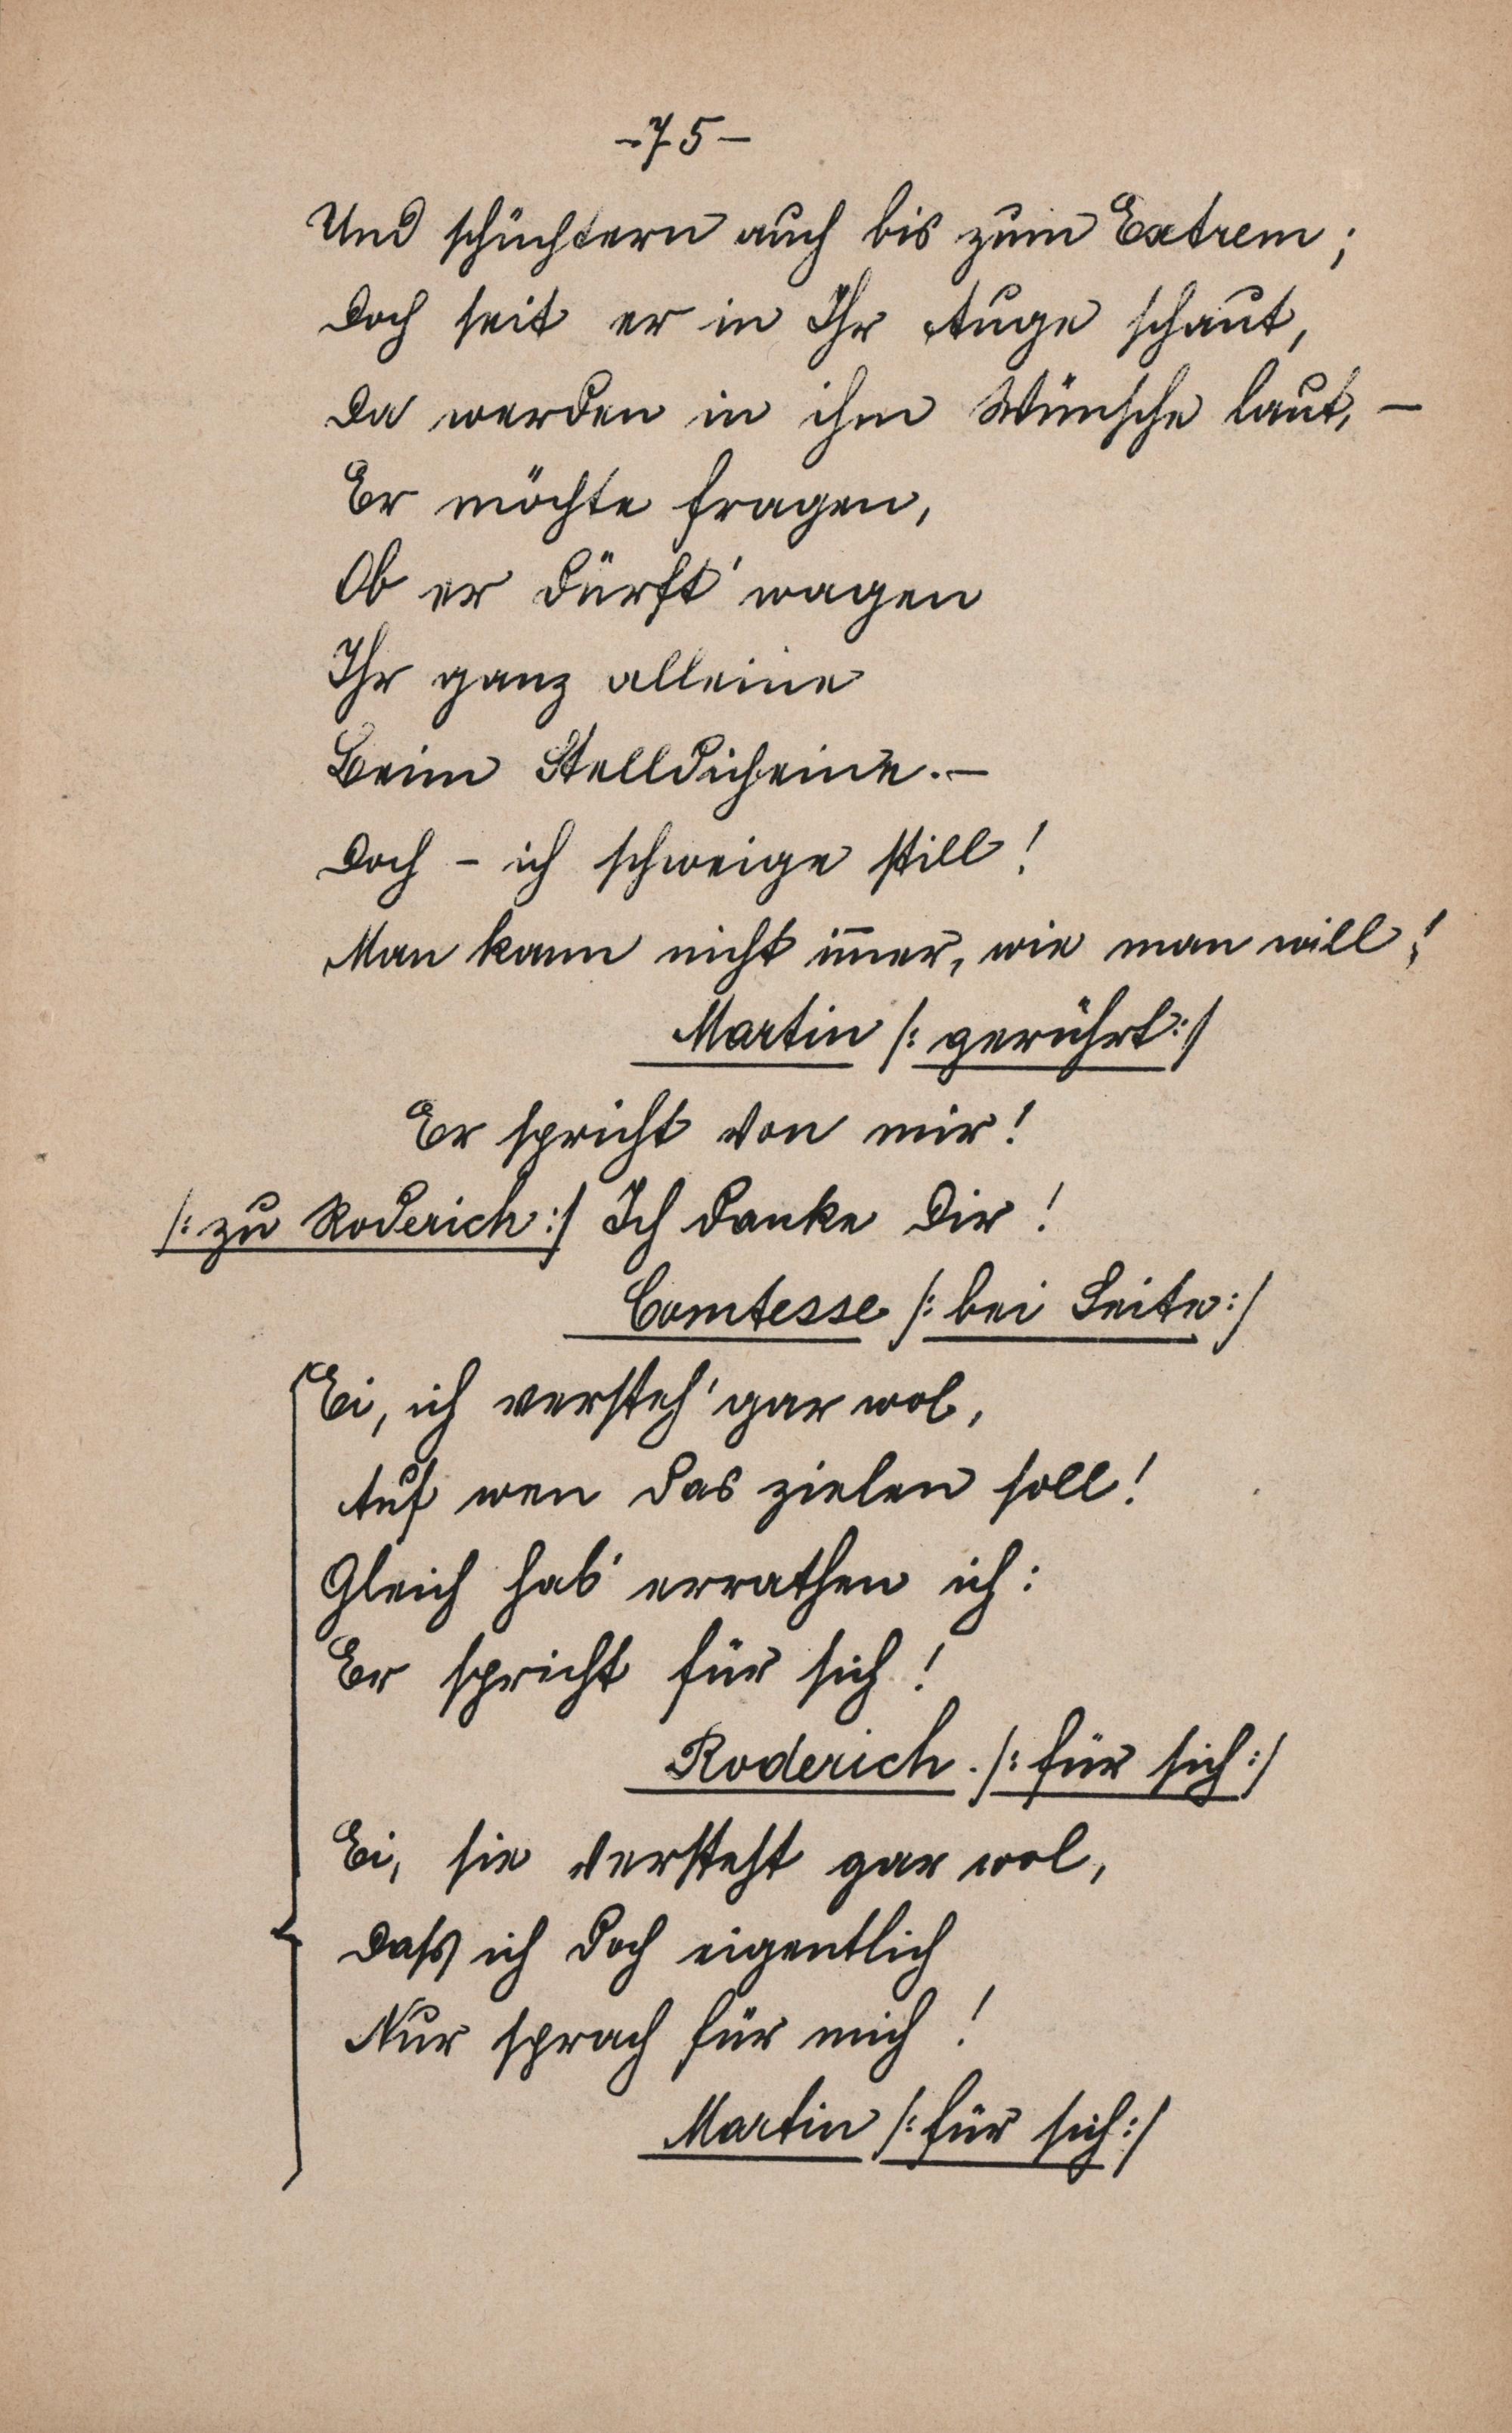 -75-
Und schüchtern auch bis zum Extrem;
Doch seit er in Ihr Auge schaut,
Da werden in ihm Wünsche laut, –
Er möchte fragen,
Ob er dürft' wagen
Ihr ganz alleine
Beim Stelldicheine. –
Doch – ich schweige still!
Man kann nicht im̄er, wie man will!
Martin /: gerührt :/
Er spricht von mir!
/: zu Roderich :/ Ich danke Dir!
Comtesse /: bei Seite :/
Ei, ich versteh' gar wol,
Auf wen das zielen soll!
Gleich hab' errathen ich:
Er spricht für sich!
Roderich. /: für sich :/
Ei, sie versteht gar wol,
Daß ich doch eigentlich
Nur sprach für mich!
Martin /: für sich :/